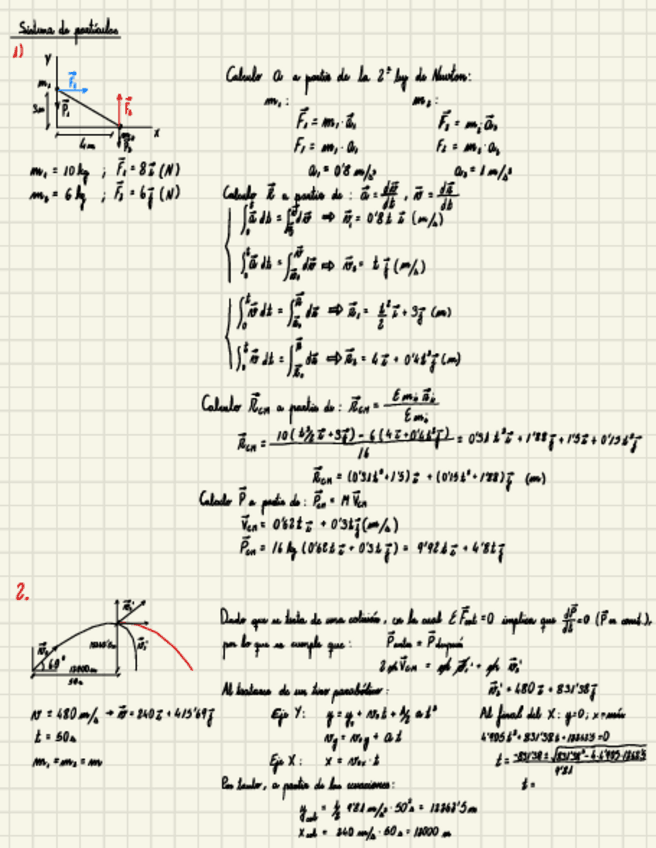 Sistema de partículas
1)
y
m₁
F⃗₁
3m
P⃗₁
F⃗₂
4m
x
m₁ = 10 kg ; F⃗₁ = 8 i⃗ (N)
m₂ = 6 kg ; F⃗₂ = 6 j⃗ (N)
Calculo a a partir de la 2ª ley de Newton:
m₁: m₂:
F⃗₁ = m₁ · a⃗₁ F⃗₂ = m₂ · a⃗₂
F₁ = m₁ · a₁ F₂ = m₂ · a₂
a₁ = 0'8 m/s² a₂ = 1 m/s²
Calculo r⃗ a partir de: a⃗ = dv⃗/dt , v⃗ = dr⃗/dt
∫₀ᵗ a⃗ dt = ∫ dv⃗ ⇒ v⃗₁ = 0'8t i⃗ (m/s)
∫₀ᵗ a⃗ dt = ∫ dv⃗ ⇒ v⃗₂ = t j⃗ (m/s)
∫₀ᵗ v⃗ dt = ∫ dr⃗ ⇒ r⃗₁ = t²/2 i⃗ + 3j⃗ (m)
∫₀ᵗ v⃗ dt = ∫ dr⃗ ⇒ r⃗₂ = 4 i⃗ + 0'4t² j⃗ (m)
Calculo r⃗CM a partir de: r⃗CM = Σ mᵢ r⃗ᵢ / Σ mᵢ
r⃗CM = 10(t²/2 i⃗ + 3j⃗) - 6(4 i⃗ + 0'4t² j⃗) / 16 = 0'31 t² i⃗ + 1'88 j⃗ + 1'5 i⃗ + 0'15 t² j⃗
r⃗CM = (0'31t² + 1'5) i⃗ + (0'15t² + 1'88) j⃗ (m)
Calculo P⃗ a partir de: P⃗CM = M V⃗CM
V⃗CM = 0'62t i⃗ + 0'3t j⃗ (m/s)
P⃗CM = 16 kg (0'62t i⃗ + 0'3t j⃗) = 9'92t i⃗ + 4'8t j⃗
2.
60°
12000m
50s
v = 480 m/s → v⃗ = 240 i⃗ + 415'69 j⃗
t = 50s
m₁ = m₂ = m
Dado que se trata de una colisión, en la cual Σ F⃗ext = 0 implica que dP⃗/dt = 0 (P⃗ = const.),
por lo que se cumple que: P⃗antes = P⃗después
2m V⃗CM = m v⃗₁' + m v⃗₂'
Al tratarse de un tiro parabólico: v⃗₂' = 480 i⃗ + 831'38 j⃗
Eje Y: y = y₀ + v₀t + ½ at² Al final del X: y=0; x=máx
vy = v₀y + at 4'905t² + 831'38t + =0
Eje X: x = v₀x · t
t =
Por tanto, a partir de las ecuaciones:
y = ½ 9'81 m/s² · 50² s = 12262'5 m
x = 240 m/s · 50s = 12000 m